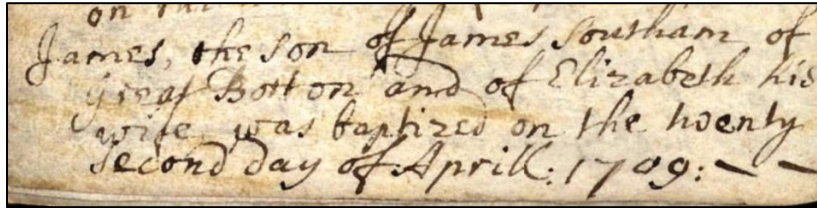 James, the son of James Southam of
Great Botton and of Elizabeth his
wife was baptized on the twenty
second day of Aprill: 1709: — —